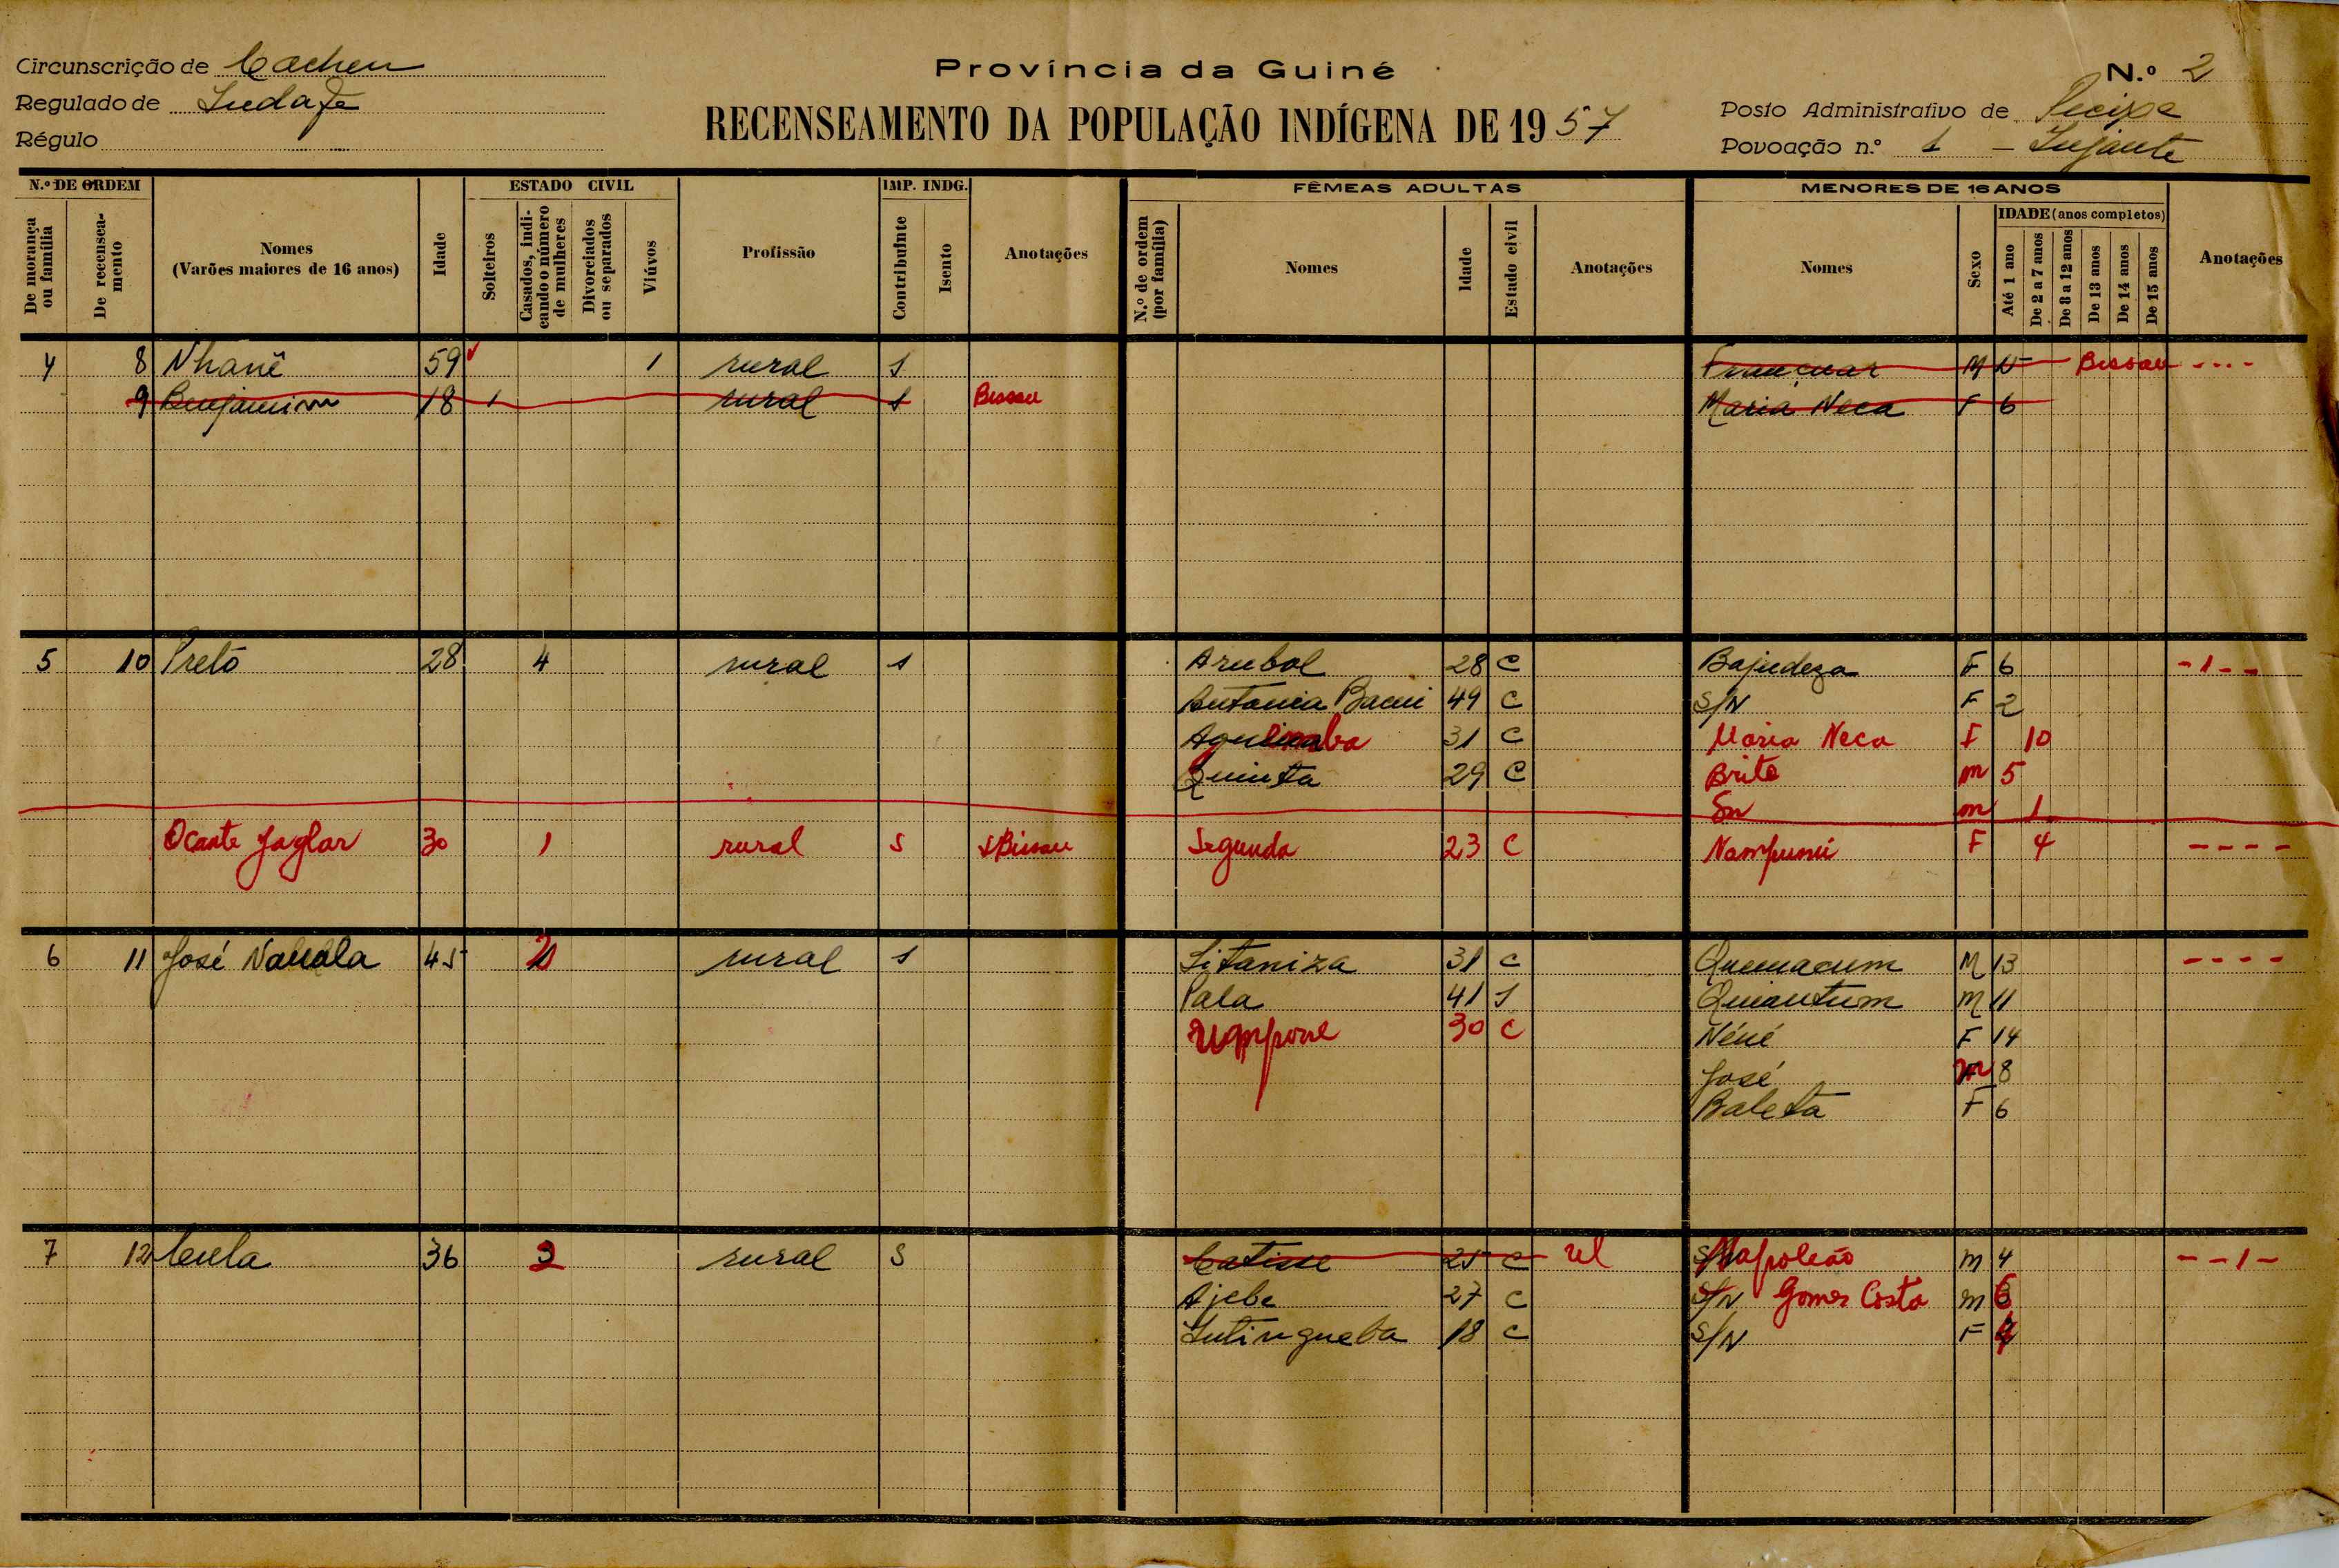 Circunscrição de Cacheu
Regulado de
Régulo
Província da Guiné
RECENSEAMENTO DA POPULAÇÃO INDÍGENA DE 1957
N.º 2
Posto Administrativo de Pecixe
Povoação n.º 1 –
N.º DE ORDEM
De morança ou família
De recenseamento
Nomes
(Varões maiores de 16 anos)
Idade
ESTADO CIVIL
Solteiros
Casados, indicando o número de mulheres
Divorciados ou separados
Viúvos
Profissão
IMP. INDG.
Contribuinte
Isento
Anotações
FÊMEAS ADULTAS
N.º de ordem (por família)
Nomes
Idade
Estado civil
Anotações
MENORES DE 16 ANOS
Nomes
Sexo
IDADE (anos completos)
Até 1 ano
De 2 a 7 anos
De 8 a 12 anos
De 13 anos
De 14 anos
De 15 anos
Anotações
4 8 Nhanê 59 1 rural s M Bissau - - - -
9 Benjamim 18 1 rural s Bissau Maria Neca F 6
5 10 Preto 28 4 rural s Arubol 28 C Bajudeza F 6 - 1 - -
Antonia Bacui 49 C S/N F 2
31 C Maria Neca F 10
Quinta 29 C Brito m 5
Sn m 1
Ocante Jaglar 30 1 rural s Bissau Segunda 23 C F 4 - - - -
6 11 José 45 2 rural s Sitaniza 31 C Quemacum M 13 - - - -
Pala 41 s Quiantum M 11
30 C Néné F 14
José m 8
Baleta F 6
7 12 36 rural s 25 C S/N Napoleão m 4 - - 1 -
Ajebe 27 C S/N Gomes Costa m 6
18 C S/N F